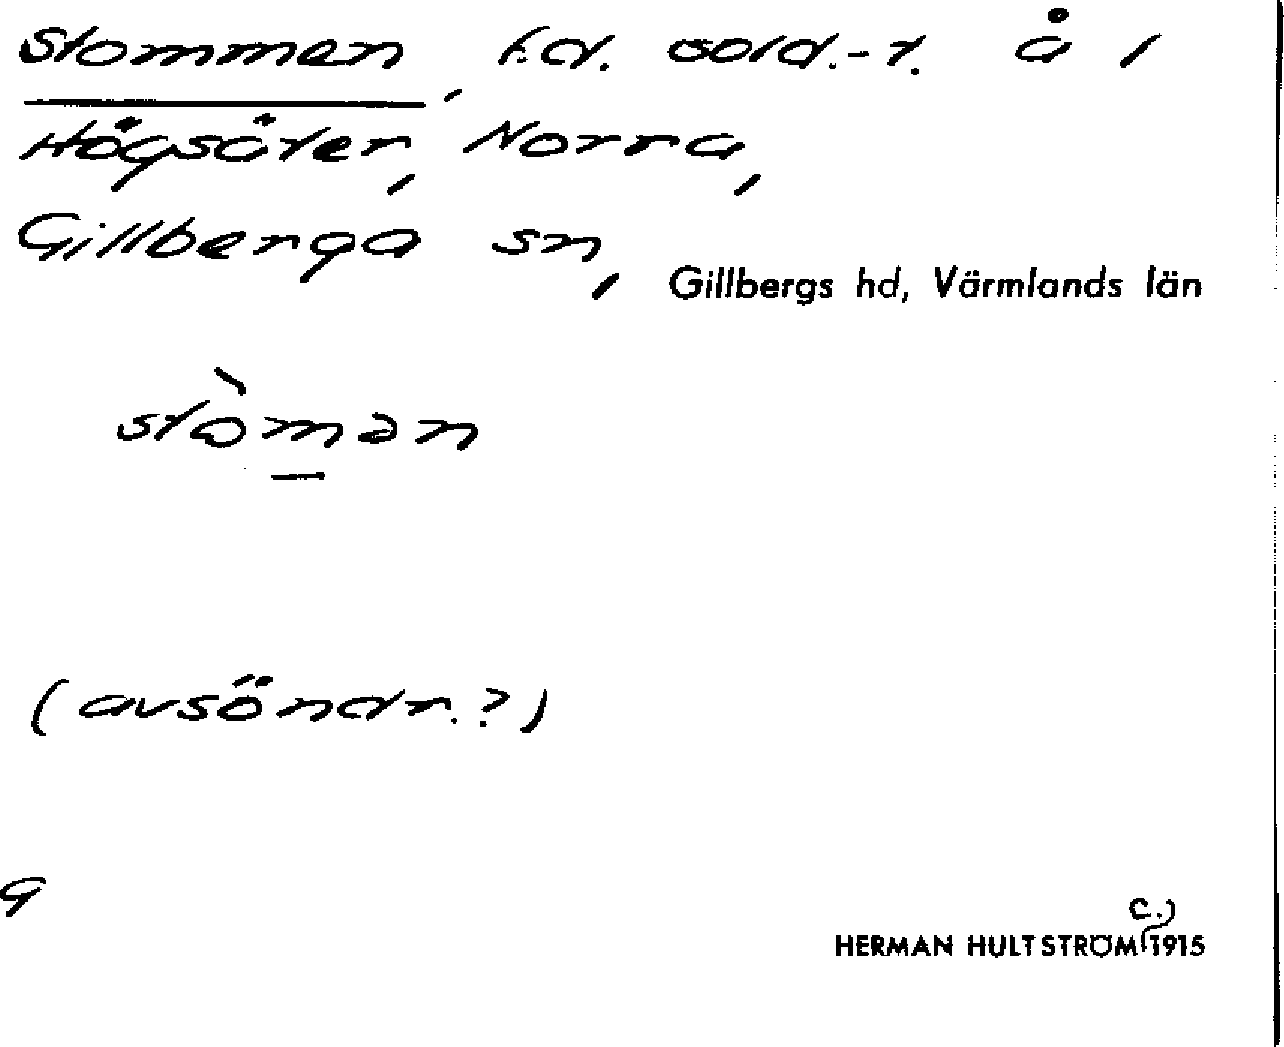 Stommen, f.d. sold.-t. å 1
Högsäter, Norra,
Gillberga sn, Gillbergs hd, Värmlands län
stòman
(avsöndr.?)
9
HERMAN HULTSTRÖM (c.) 1915